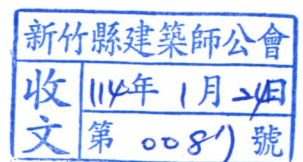 新竹縣建築師公會
收文
114年1月24日
第 0087 號